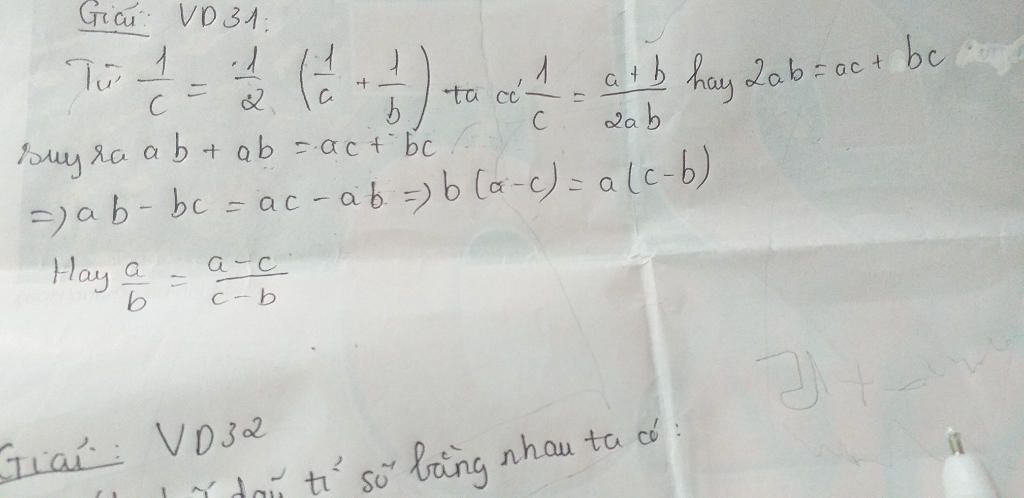 Giải: VD31:
Từ 1/c = 1/2 (1/a + 1/b) ta có 1/c = (a+b)/2ab hay 2ab = ac + bc
suy ra ab + ab = ac + bc
=> ab - bc = ac - ab => b(a-c) = a(c-b)
Hay a/b = (a-c)/(c-b)
Giải: VD32
tỉ số bằng nhau ta có: